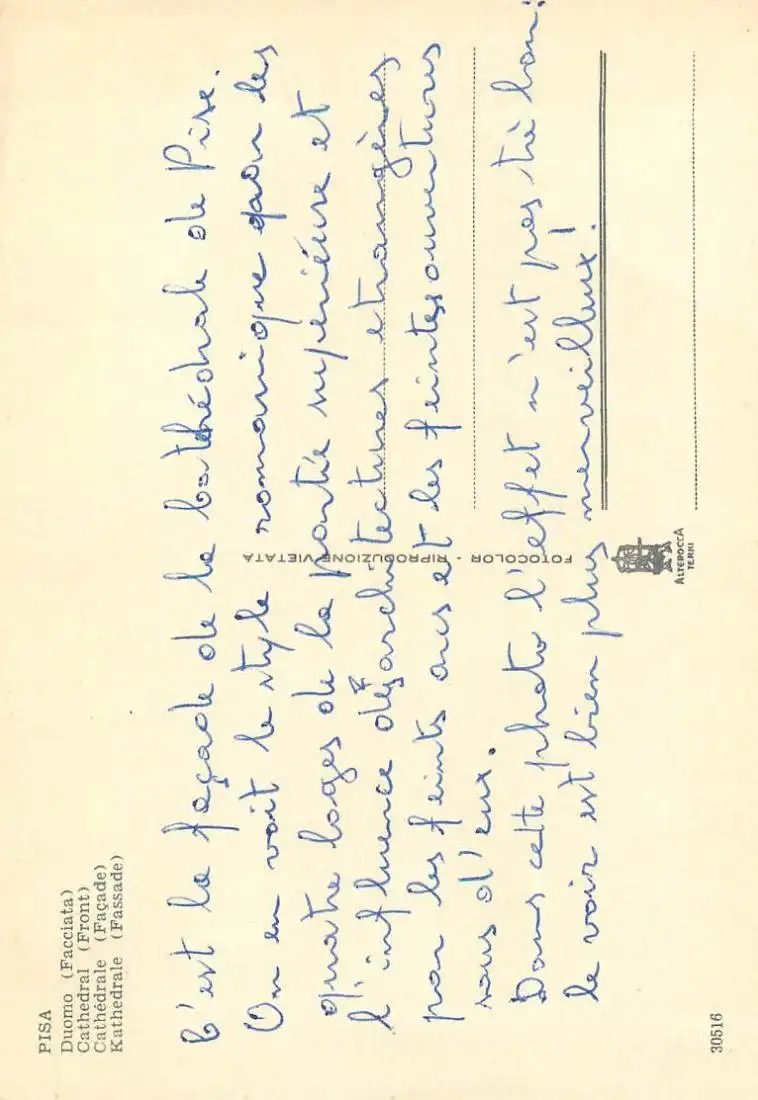 PISA
Duomo (Facciata)
Cathedral (Front)
Cathédrale (Façade)
Kathedrale (Fassade)
C'est la façade de la Cathédrale de Pise.
On en voit le style romanique par les
quatre loges de la partie supérieure et
l'influence des architectures etrangères
par les feints arcs et les feintes ouvertures
sous d'eux.
Dans cette photo l'effet n'est pas trè bon:
le voir est bien plus merveilleux!
FOTOCOLOR - RIPRODUZIONE VIETATA
ALTEROCCA
TERNI
30516